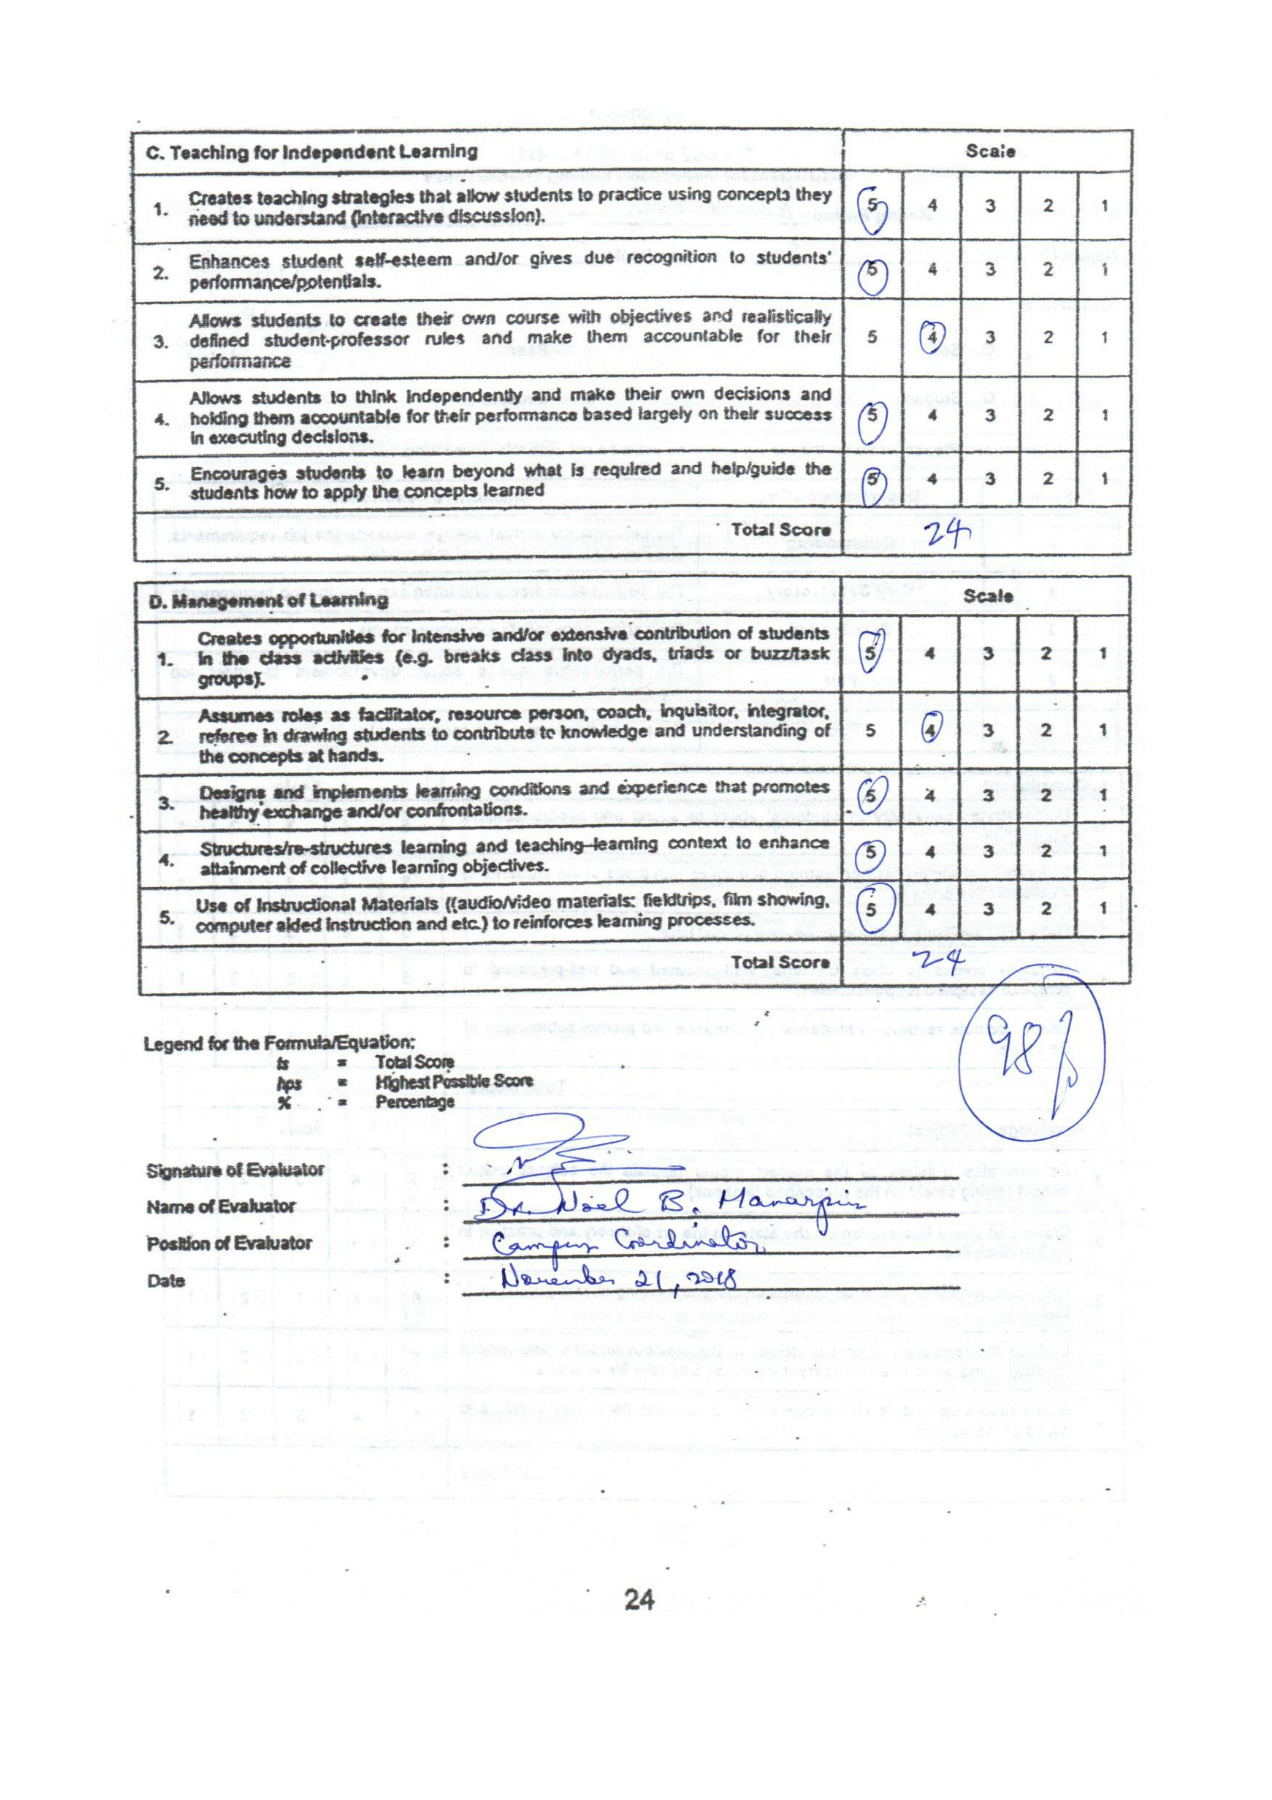 C. Teaching for Independent Learning Scale
1. Creates teaching strategies that allow students to practice using concepts they
need to understand (interactive discussion). 5 4 3 2 1
2. Enhances student self-esteem and/or gives due recognition to students'
performance/potentials. 5 4 3 2 1
Allows students to create their own course with objectives and realistically
3. defined student-professor rules and make them accountable for their 5 4 3 2 1
performance
Allows students to think independently and make their own decisions and
4. holding them accountable for their performance based largely on their success 5 4 3 2 1
in executing decisions.
5. Encourages students to learn beyond what is required and help/guide the
students how to apply the concepts learned 5 4 3 2 1
Total Score 24
D. Management of Learning Scale
Creates opportunities for intensive and/or extensive contribution of students
1. in the class activities (e.g. breaks class into dyads, triads or buzz/task 5 4 3 2 1
groups).
Assumes roles as facilitator, resource person, coach, inquisitor, integrator,
2. referee in drawing students to contribute to knowledge and understanding of 5 4 3 2 1
the concepts at hands.
3. Designs and implements learning conditions and experience that promotes
healthy exchange and/or confrontations. 5 4 3 2 1
4. Structures/re-structures learning and teaching-learning context to enhance
attainment of collective learning objectives. 5 4 3 2 1
5. Use of Instructional Materials ((audio/video materials: fieldtrips, film showing,
computer aided instruction and etc.) to reinforces learning processes. 5 4 3 2 1
Total Score 24
98
Legend for the Formula/Equation:
ts = Total Score
hps = Highest Possible Score
% = Percentage
Signature of Evaluator :
Name of Evaluator : Dr. Noel B. Manarpiis
Position of Evaluator : Campus Coordinator
Date : November 21, 2018
24